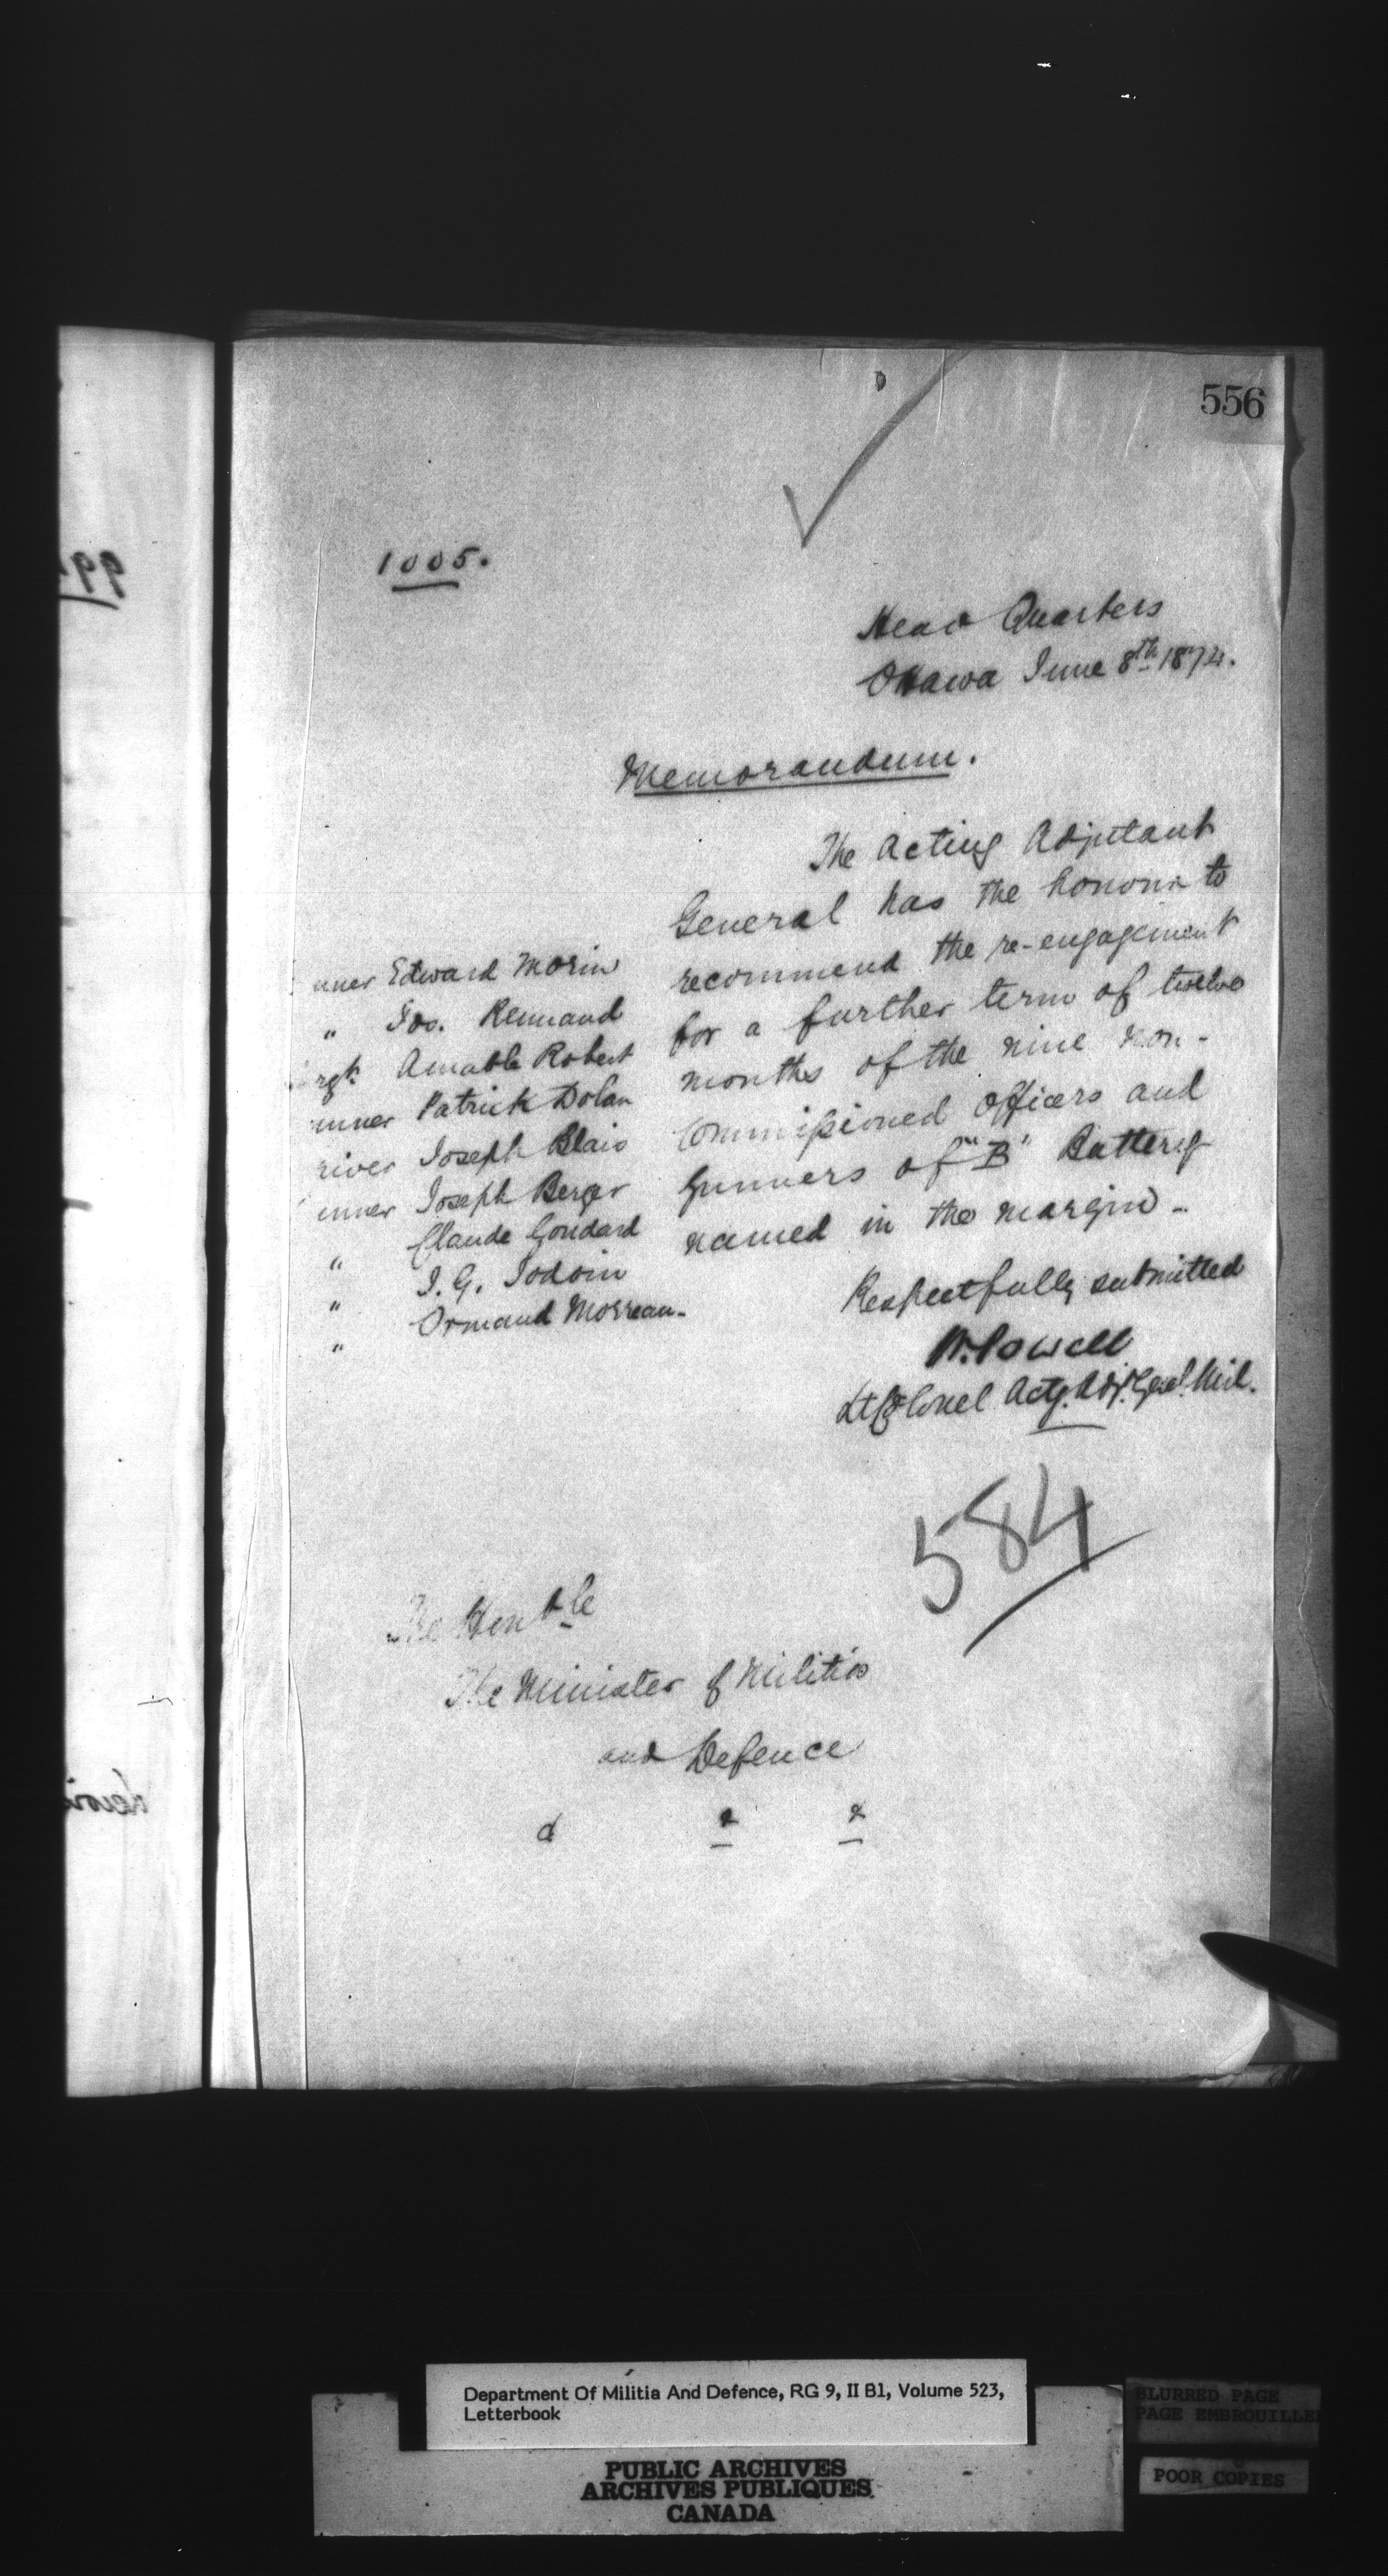 556
1005.
Head Quarters
Ottawa June 8th 1874.
Memorandum.
The Acting Adjutant
General has the honour to
recommend the re-engagement
for a further term of twelve
months of the nine non-
Commissioned Officers and
Gunners of "B" Battery
named in the margin -
unner Edward Morin
" Jos. Renaud
rgt. Amable Robert
unner Patrick Dolan
river Joseph Blais
unner Joseph Berger
" Claude Goudard
" J. G. Jodoin
" Ormand Morreau -
Respectfully submitted
W. Powell
Lt Colonel Actg. Adj. Genl. Mil.
584
The Honble
The Minister of Militia
and Defence
& & &
Department Of Militia And Defence, RG 9, II B1, Volume 523,
Letterbook
PUBLIC ARCHIVES
ARCHIVES PUBLIQUES
CANADA
BLURRED PAGE
PAGE EMBROUILLE
POOR COPIES